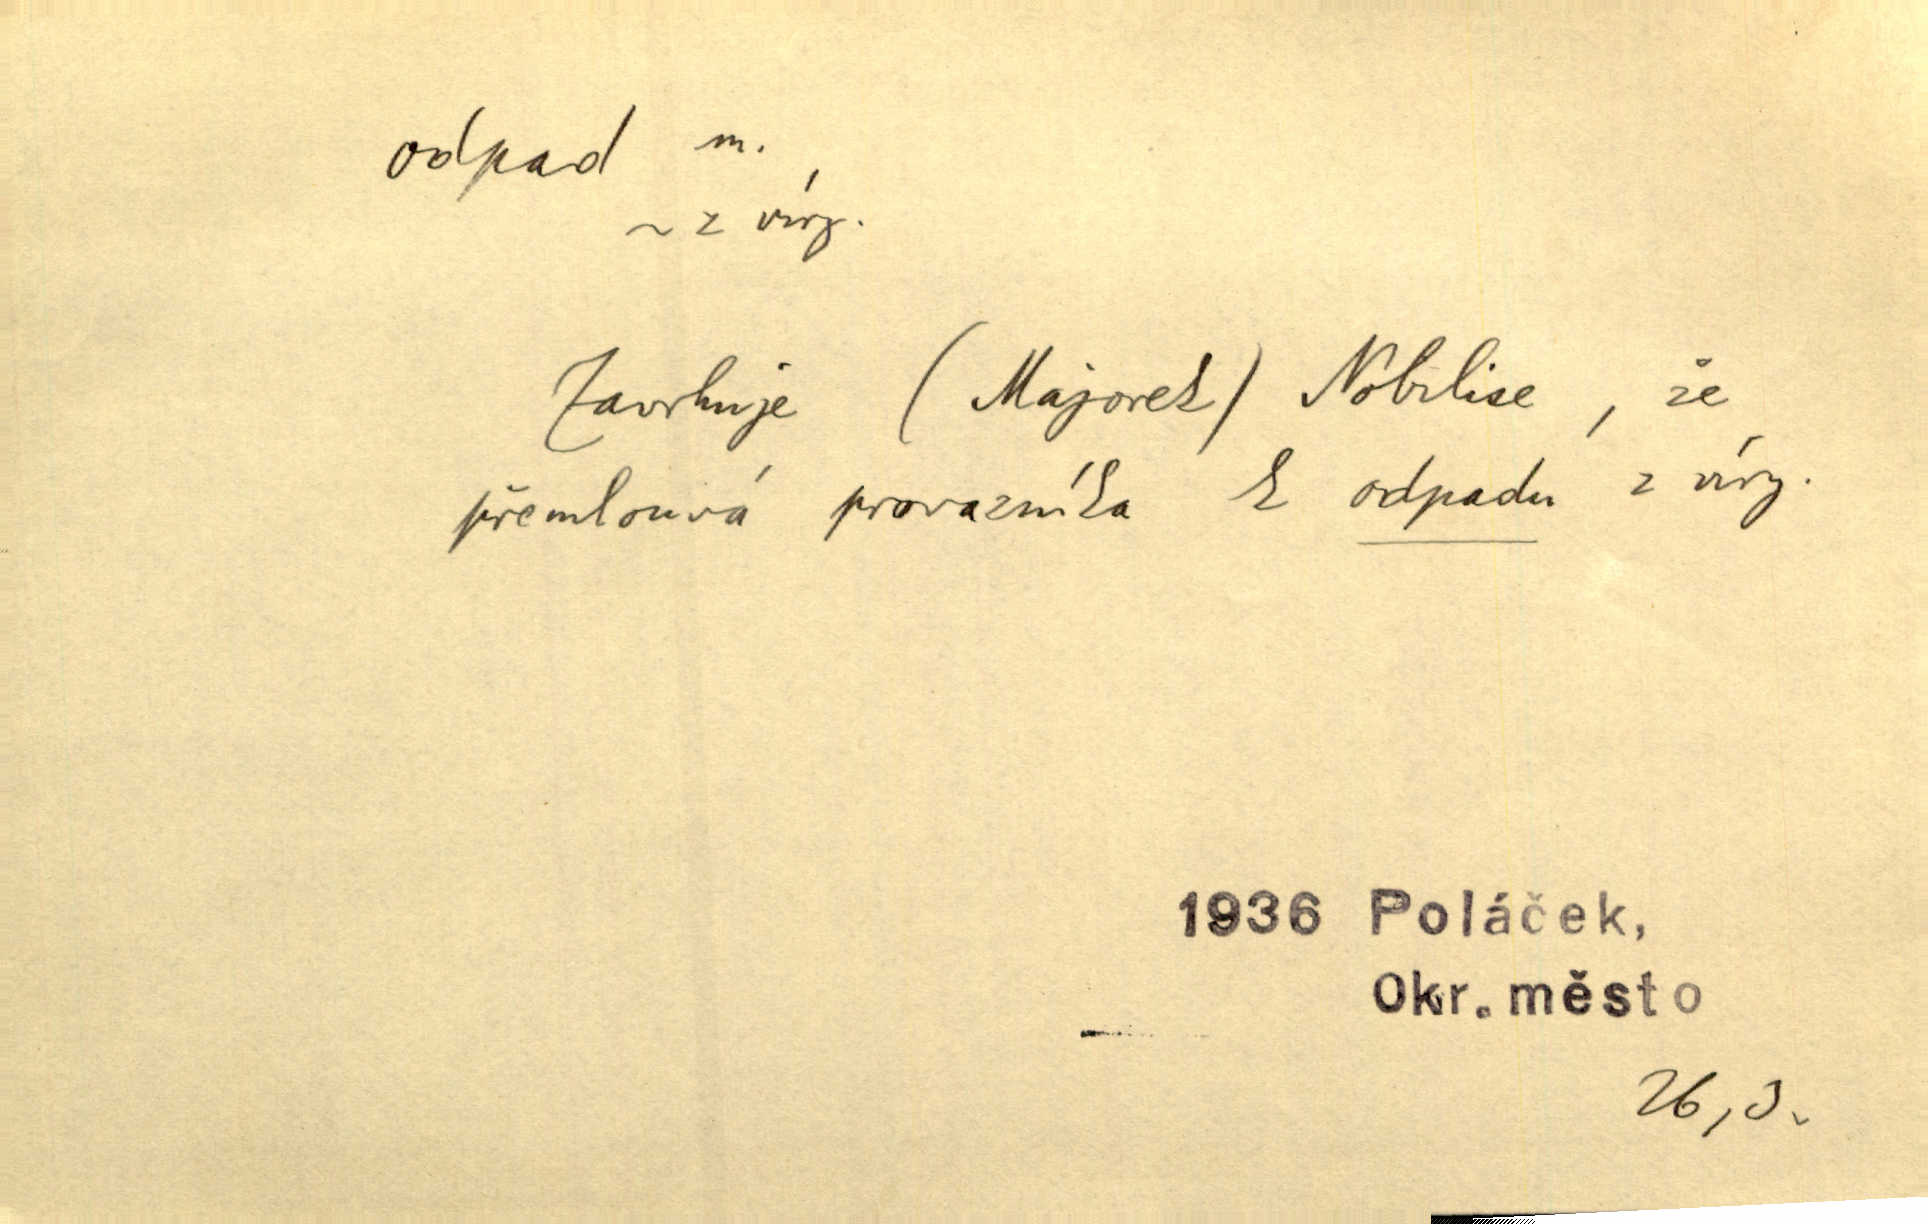 odpad m.
~ z víry.
Zavrhuje (Majorek) Nobilise, že
přemlouvá provazníka k odpadu z víry.
1936 Poláček,
Okr. město
26,3.